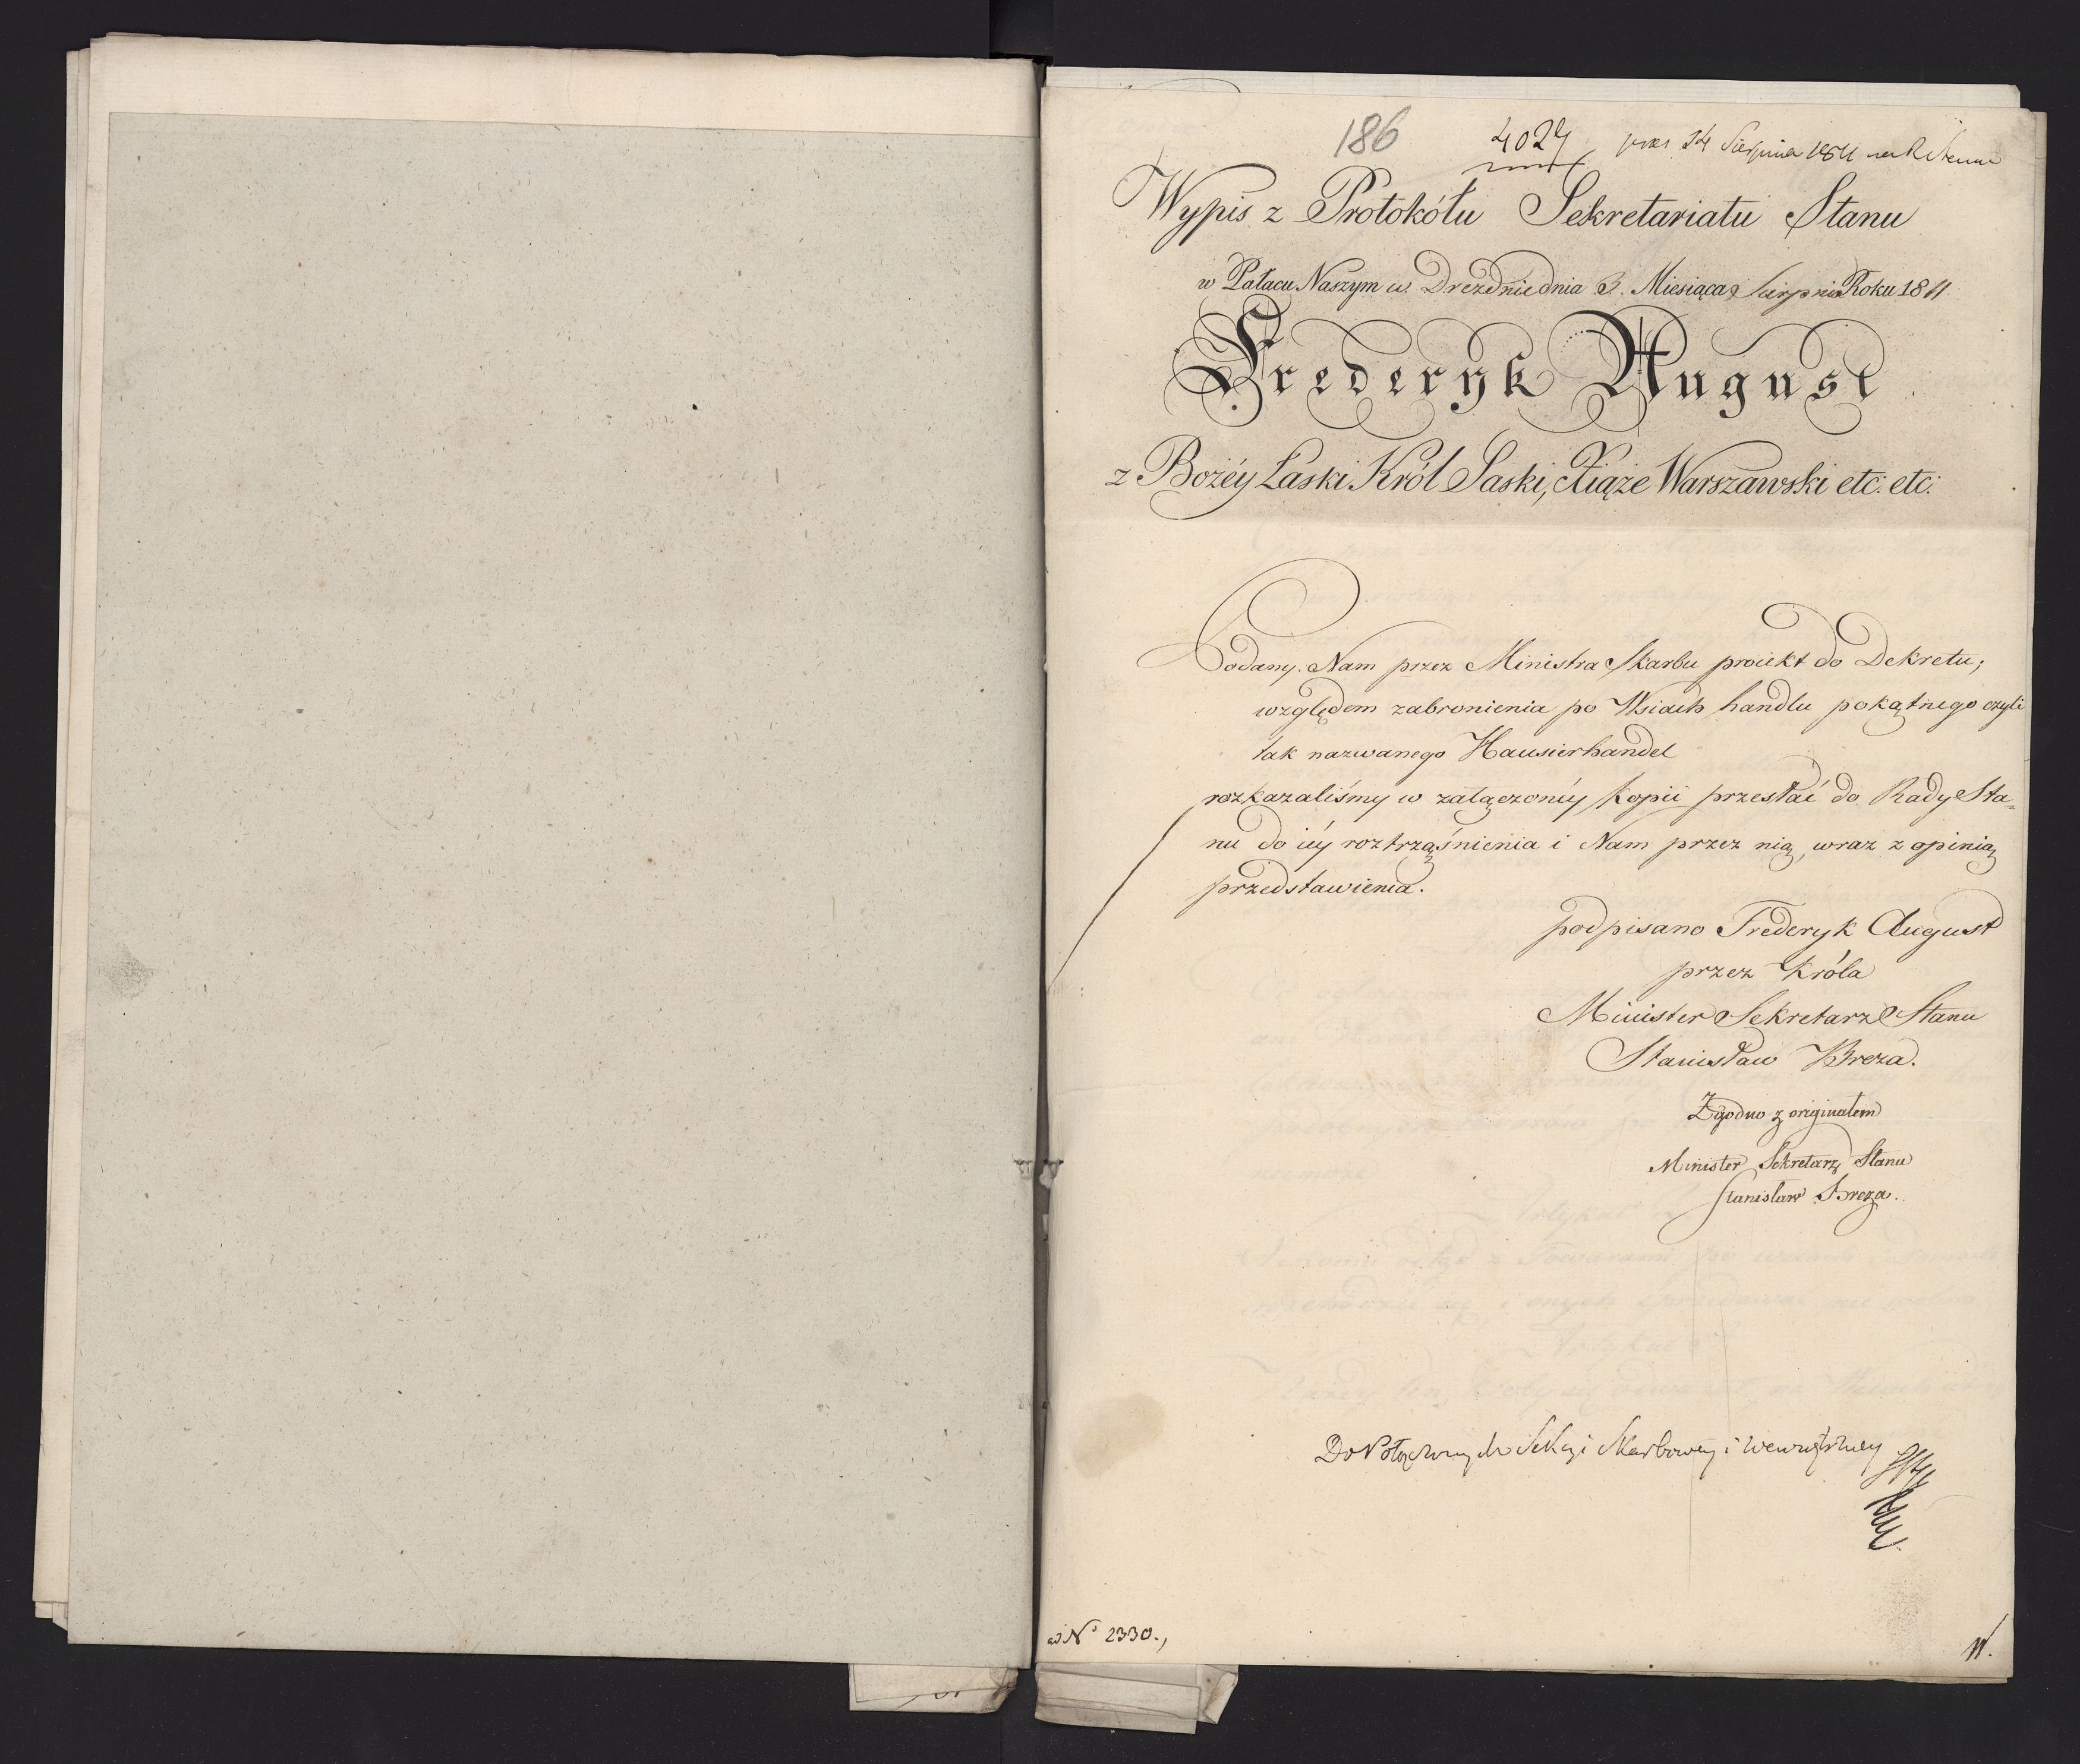 186 4027 14 Sierpnia 1811
Wypis z Protokółu Sekretariatu Stanu
w Pałacu Naszym w Dreznie dnia 3. Miesiąca Sierpnia Roku 1811
Frederyk August
z Bożéy Łaski Król Saski, Xiąże Warszawski etc: etc:
Podany Nam przez Ministra Skarbu proiekt do Dekretu,
względem zabronienia po Wsiach handlu pokątnego czyli
tak nazwanego Hausierhandel
rozkazaliśmy w załączonéy kopii przesłać do Rady Sta-
nu do iéy roztrząśnienia i Nam przez nią, wraz z opinią
przedstawienia.
podpisano Frederyk August
przez Króla
Minister Sekretarz Stanu
Stanisław Breza.
Zgodno z originałem
Minister Sekretarz Stanu
Stanisław Breza.
Do Połączonych Sekcyi Skarbowey i Wewnętrzney
ad No 2330.,